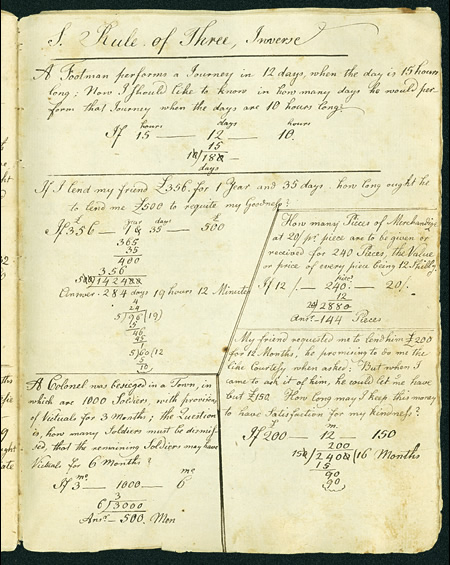 S. Rule of Three, Inverse
A Footman performs a Journey in 12 days, when the day is 15 hours
long; Now I should like to know in how many days he would per
form that Journey when the days are 10 hours long?
hours days hours
If 15 — 12 — 10
15
10)180
days
If I lend my friend £356. for 1 Year and 35 days. how long ought he
to lend me £500 to requite my Goodness?
£ year days £
If 356 — 1 & 35 — 500
365
35
400
356
500)142400
Answer. 284 days 19 hours 12 Minutes
4
24
5)96(19)
46
45
1
5)60(12
5
10
A Colonel was besieged in a Town, in
which are 1000 Soldiers, with provision
of Victuals for 3 Months; the Question
is, how many Soldiers must be dismiss
sed, that the remaining Soldiers may have
Victuals for 6 Months?
mo mo
If 3 — 1000 — 6
3
6)3000
Ansr. 500. Men
How many Pieces of Merchandize
at 20/ pr. piece are to be given or
received for 240 Pieces, the Value
or price of every piece being 12 Shillgs.
pieces
If 12/ — 240 — 20/.
12
20)2880
Ansr. 144 Pieces
My friend requested me to lend him £200
for 12 Months, he promising to do me the
like Courtesy when asked; But when I
came to ask it of him, he could let me have
but £150. How long may I keep this money
to have Satisfaction for my kindness?
m.
If 200 — 12 — 150
200
150)2400(16 Months
15
90
90